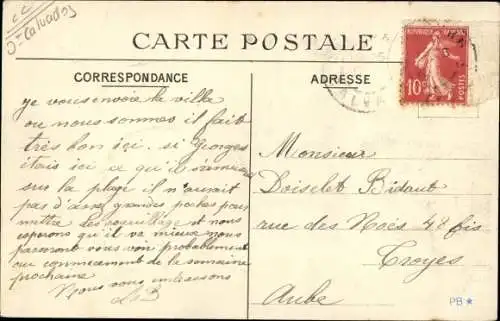 Dt Calvados
CARTE POSTALE
CORRESPONDANCE
ADRESSE
je vous envoie la ville
ou nous sommes il fait
très bon ici. si Georges
étais ici ce qu'il s'amuserai
sur la plage il n'aurait
pas d'assez grandes poches pour
mettre les coquillages et nous
esperons qu'il va mieux nous
passerons vous voir probablement
ou commencement de la semaine
prochaine
Nous vous embrassons
LB
Monsieur
Doiselet Bidaut
rue des Noës 48 bis
Troyes
Aube
10c
POSTES
PB